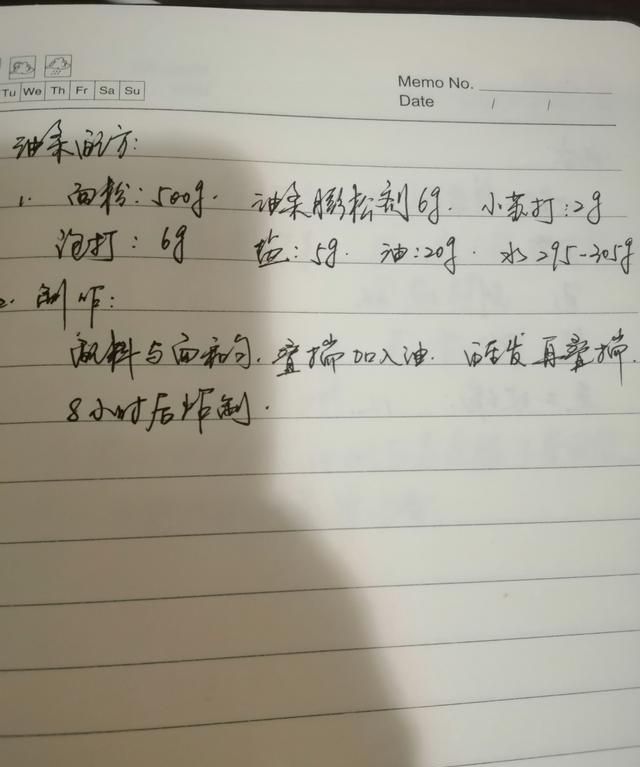 Tu We Th Fr Sa Su
Memo No.
Date / /
油条配方:
1. 面粉:500g. 油条膨松剂6g. 小苏打:2g
泡打:6g 盐:5g. 油:20g. 水295-305g
2. 制作:
配料与面和匀. 叠揣加入油. 醒发再叠揣.
8小时后炸制.